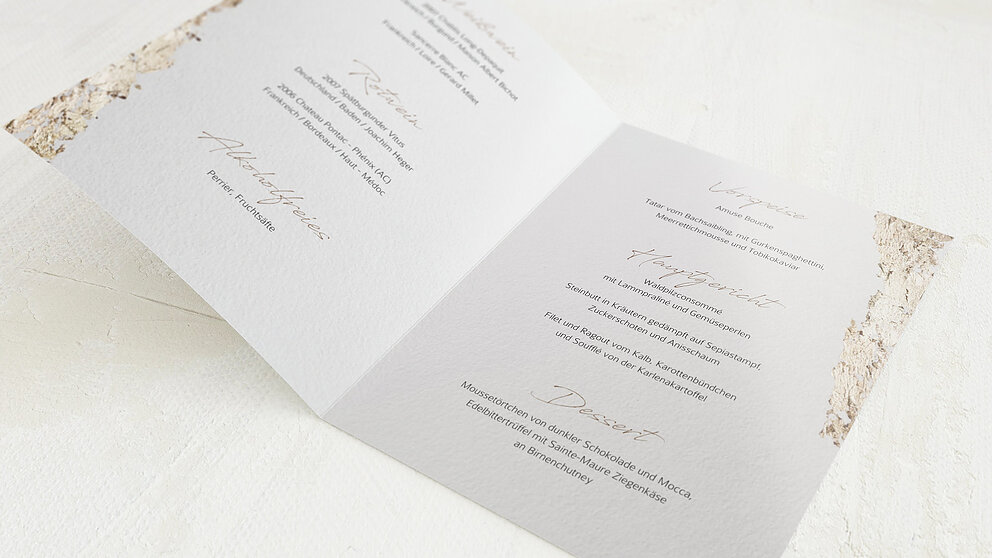 Weißwein
Sancerre Blanc AC
Frankreich / Loire / Gerard Millet
Rotwein
2007 Spätburgunder Vitus
Deutschland / Baden / Joachim Heger
2006 Chateau Pontac - Phénix (AC)
Frankreich / Bordeaux / Haut - Médoc
Alkoholfreies
Perrier, Fruchtsäfte
Vorspeise
Amuse Bouche
Tatar vom Bachsaibling, mit Gurkenspaghettini,
Meerrettichmousse und Tobikokaviar
Hauptgericht
Waldpilzconsommé
mit Lammpraliné und Gemüseperlen
Steinbutt in Kräutern gedämpft auf Sepiastampf,
Zuckerschoten und Anisschaum
Filet und Ragout vom Kalb, Karottenbündchen
und Soufflé von der Karlenakartoffel
Dessert
Moussetörtchen von dunkler Schokolade und Mocca,
Edelbittertrüffel mit Sainte-Maure Ziegenkäse
an Birnenchutney